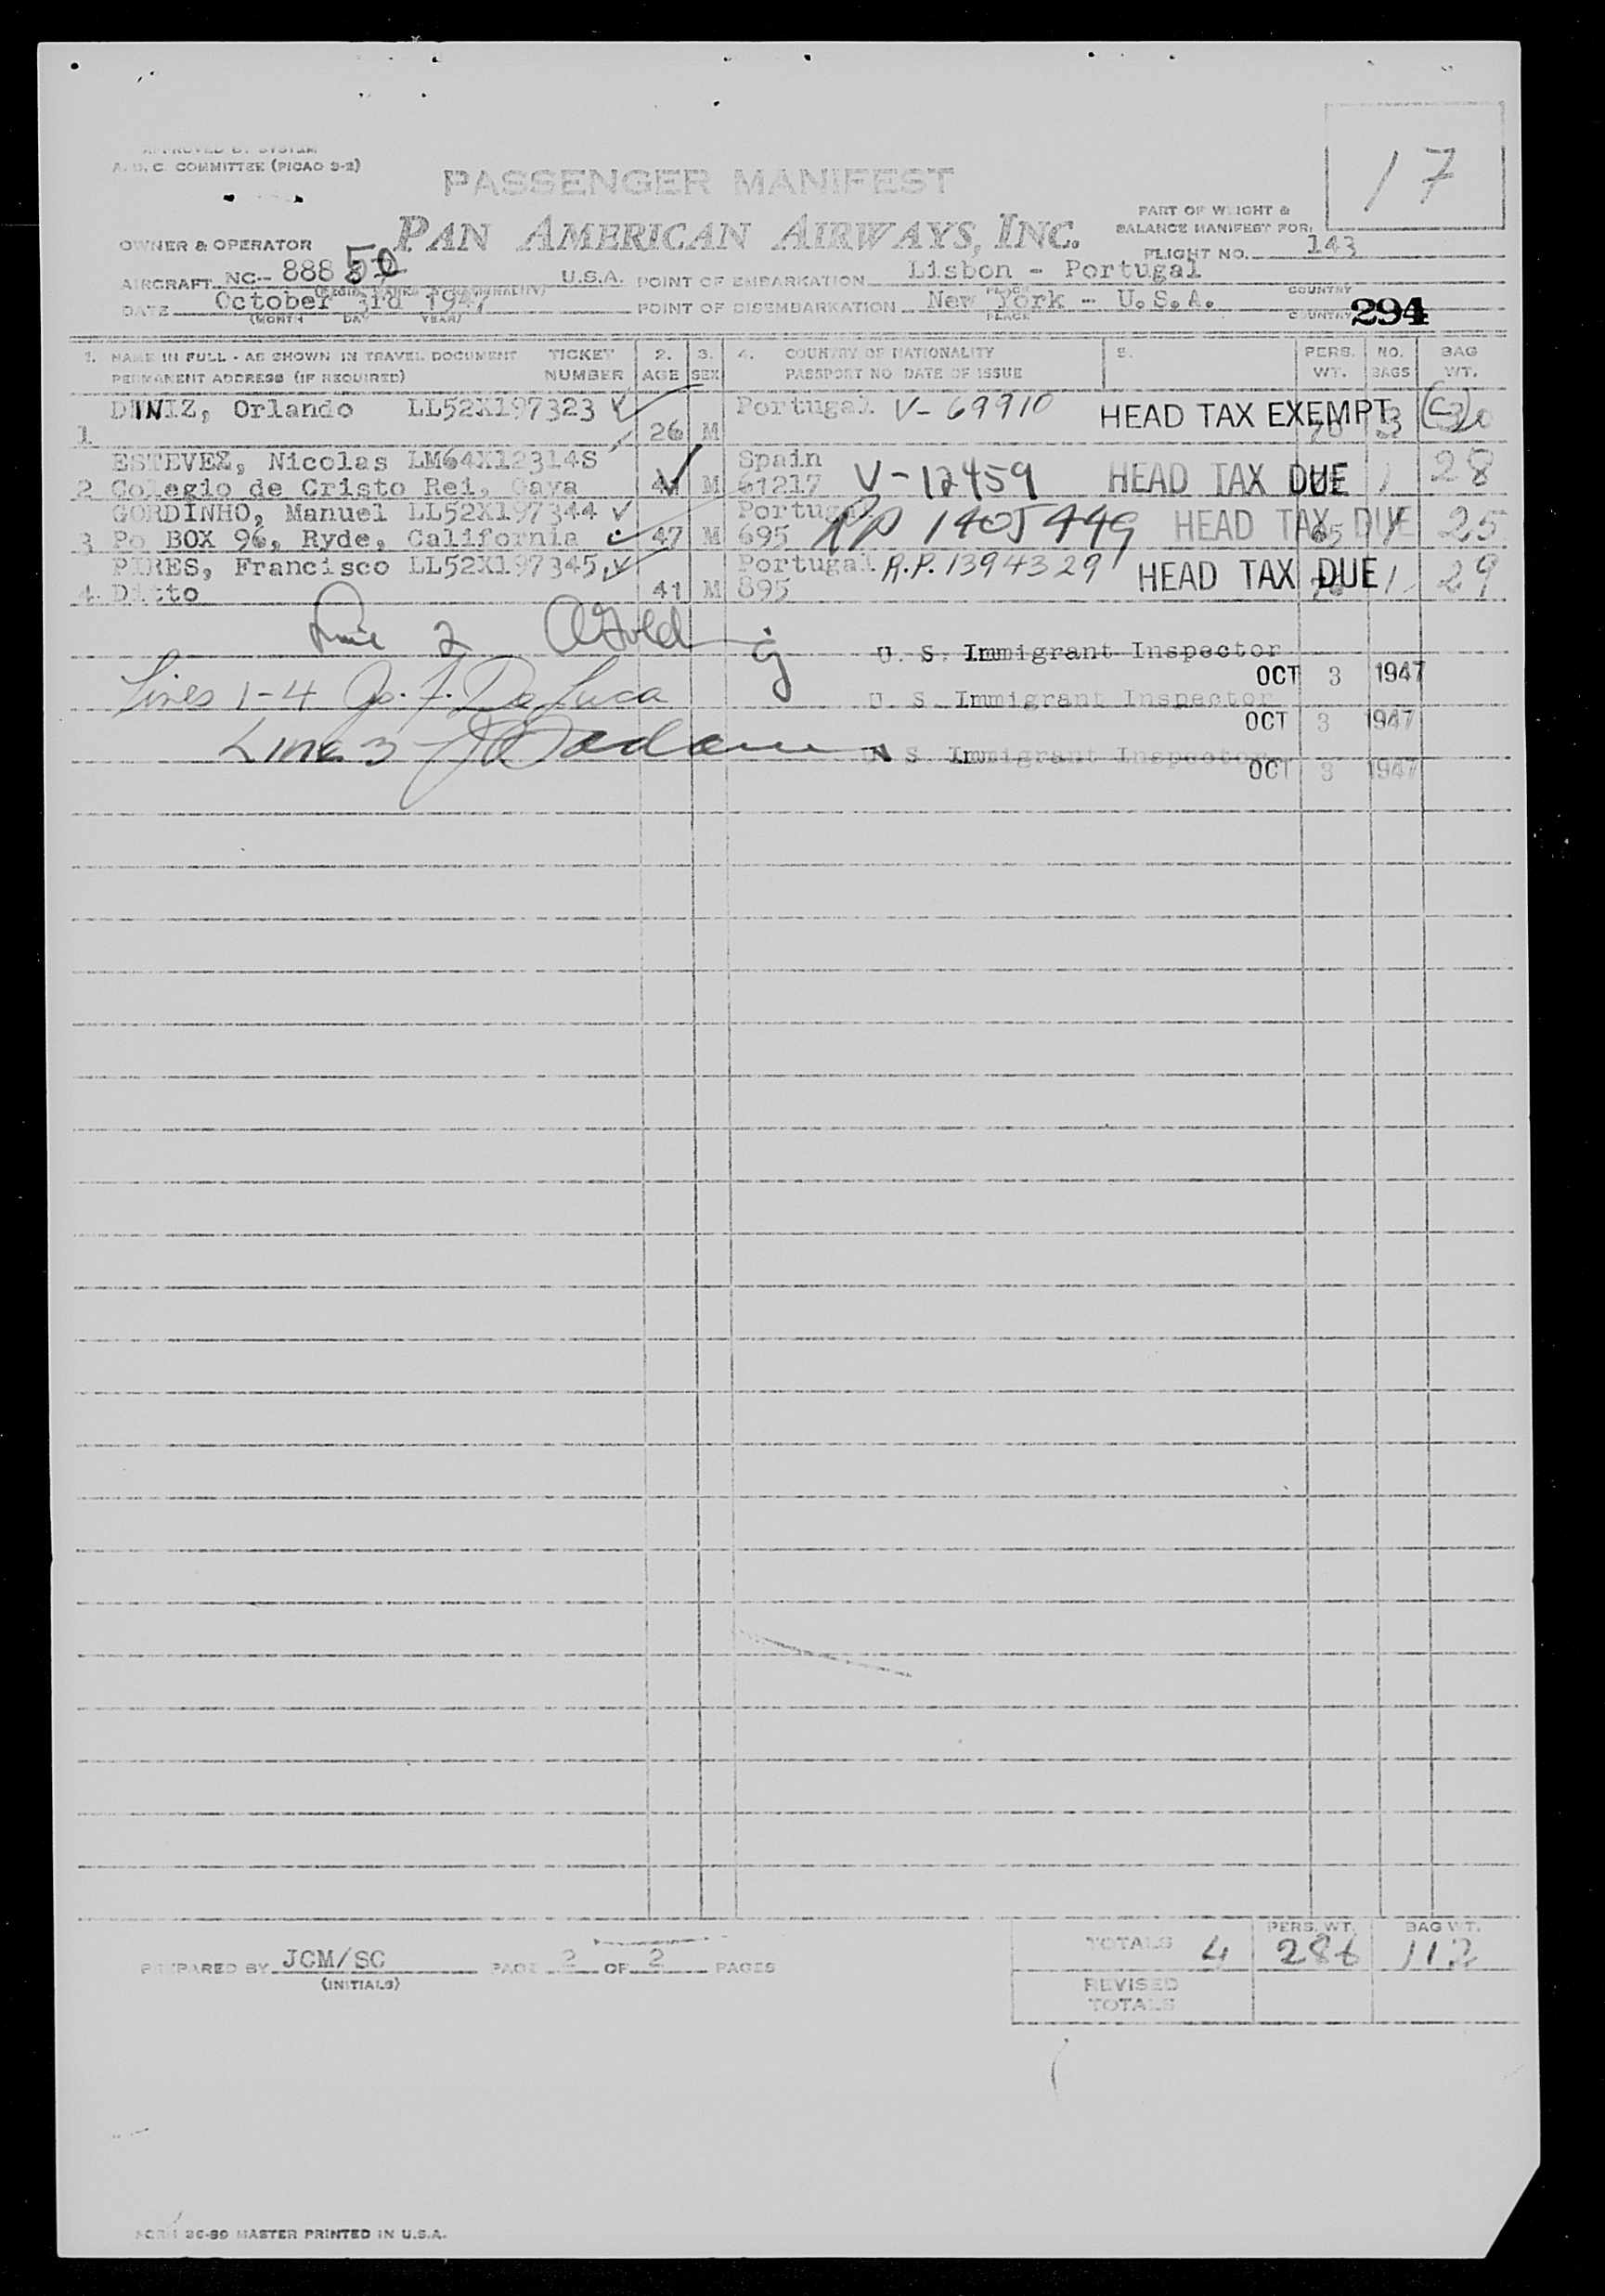 APPROVED BY SYSTEM
A. D. C. COMMITTEE (PICAO 3-2)
17
PASSENGER MANIFEST
PAN AMERICAN AIRWAYS, INC.
PART OF WEIGHT &
BALANCE MANIFEST FOR:
FLIGHT NO. 143
OWNER & OPERATOR
AIRCRAFT NC-- 888 50 U.S.A. POINT OF EMBARKATION Lisbon - Portugal
PLACE COUNTRY
DATE October 3rd 1947 POINT OF DISEMBARKATION New York - U.S.A.
(MONTH DAY YEAR) PLACE COUNTRY 294
1. NAME IN FULL - AS SHOWN IN TRAVEL DOCUMENT TICKET 2. 3. 4. COUNTRY OF NATIONALITY 5. PERS. NO. BAG
PERMANENT ADDRESS (IF REQUIRED) NUMBER AGE SEX PASSPORT NO DATE OF ISSUE WT. BAGS WT.
DINIZ, Orlando LL52X197323 Portugal V-69910 HEAD TAX EXEMPT
1 26 M 3
ESTEVEZ, Nicolas LM64X12314S Spain V-12459 HEAD TAX DUE 1 28
2 Colegio de Cristo Rei, Gaya M 61217
GORDINHO, Manuel LL52X197344 Portugal RP 1405449 HEAD TAX DUE 1 25
3 Po BOX 96, Ryde, California 47 M 695 65
PIRES, Francisco LL52X197345 Portugal R.P. 1394329 HEAD TAX DUE 1 29
4 Ditto 41 M 895
Line 2 U. S. Immigrant Inspector
OCT 3 1947
Lines 1-4 Jo. F. DeLuca U. S. Immigrant Inspector
OCT 3 1947
Line 3 U S. Immigrant Inspector
OCT 3 1947
PREPARED BY JCM/SC PAGE 2 OF 2 PAGES
(INITIALS)
PERS. WT. BAG WT.
TOTALS 4 286 112
REVISED
TOTALS
FORM 36-89 MASTER PRINTED IN U.S.A.